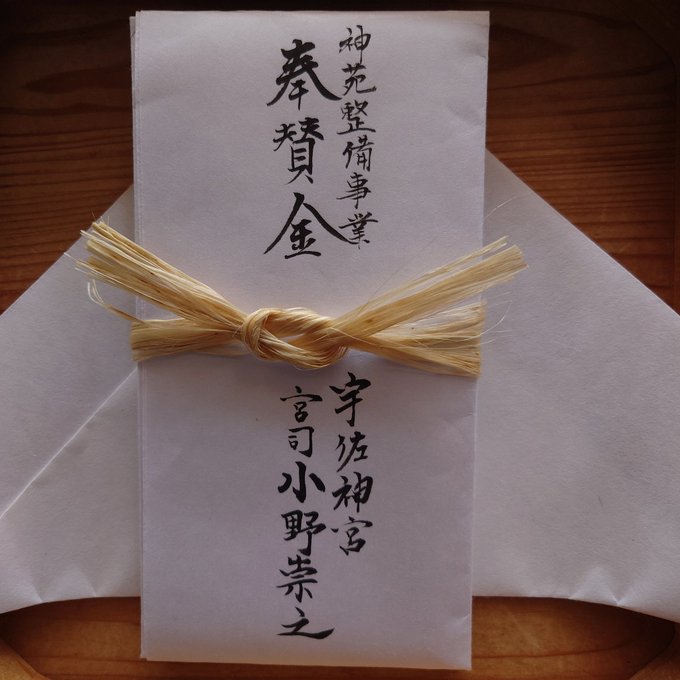 神苑整備事業
奉賛金
宇佐神宮
宮司 小野崇之